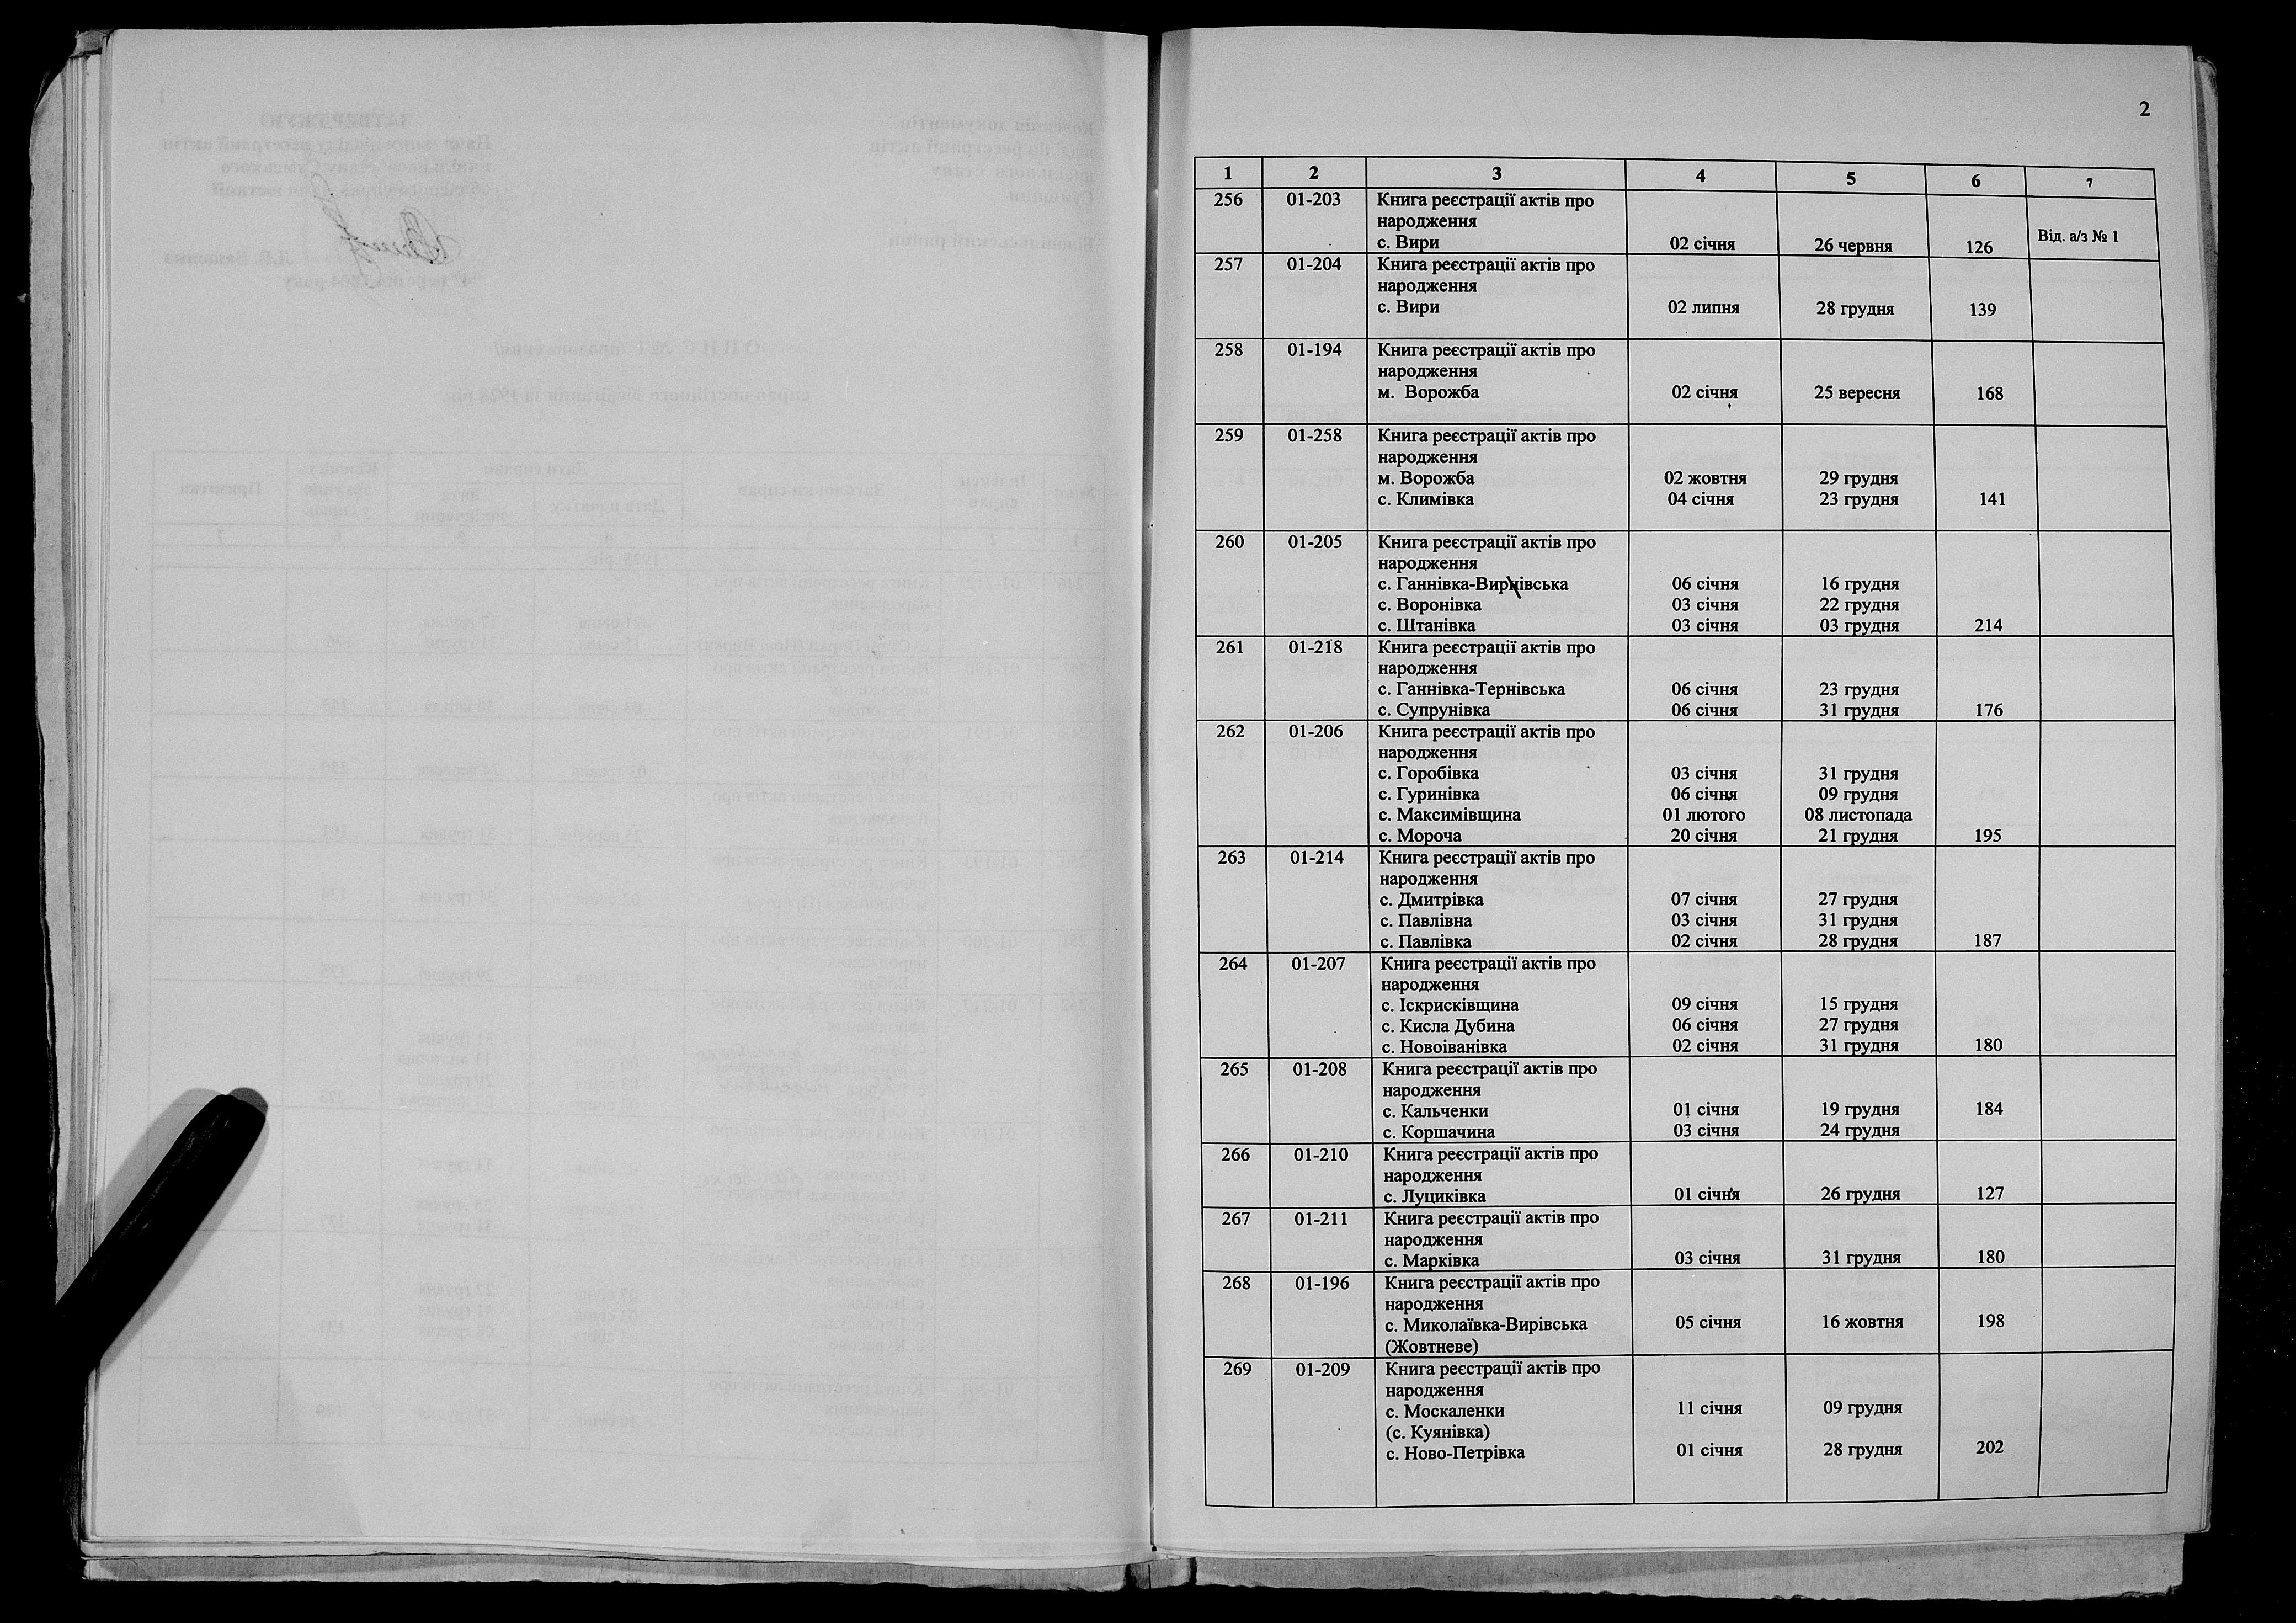 2
1 2 3 4 5 6 7
256 01-203 Книга реєстрації актів про
народження
с. Вири 02 січня 26 червня 126 Від. а/з № 1
257 01-204 Книга реєстрації актів про
народження
с. Вири 02 липня 28 грудня 139
258 01-194 Книга реєстрації актів про
народження
м. Ворожба 02 січня 25 вересня 168
259 01-258 Книга реєстрації актів про
народження
м. Ворожба 02 жовтня 29 грудня
с. Климівка 04 січня 23 грудня 141
260 01-205 Книга реєстрації актів про
народження
с. Ганнівка-Вирнівська 06 січня 16 грудня
с. Воронівка 03 січня 22 грудня
с. Штанівка 03 січня 03 грудня 214
261 01-218 Книга реєстрації актів про
народження
с. Ганнівка-Тернівська 06 січня 23 грудня
с. Супрунівка 06 січня 31 грудня 176
262 01-206 Книга реєстрації актів про
народження
с. Горобівка 03 січня 31 грудня
с. Гуринівка 06 січня 09 грудня
с. Максимівщина 01 лютого 08 листопада
с. Мороча 20 січня 21 грудня 195
263 01-214 Книга реєстрації актів про
народження
с. Дмитрівка 07 січня 27 грудня
с. Павлівна 03 січня 31 грудня
с. Павлівка 02 січня 28 грудня 187
264 01-207 Книга реєстрації актів про
народження
с. Іскрисківщина 09 січня 15 грудня
с. Кисла Дубина 06 січня 27 грудня
с. Новоіванівка 02 січня 31 грудня 180
265 01-208 Книга реєстрації актів про
народження
с. Кальченки 01 січня 19 грудня 184
с. Коршачина 03 січня 24 грудня
266 01-210 Книга реєстрації актів про
народження
с. Луциківка 01 січня 26 грудня 127
267 01-211 Книга реєстрації актів про
народження
с. Марківка 03 січня 31 грудня 180
268 01-196 Книга реєстрації актів про
народження
с. Миколаївка-Вирівська 05 січня 16 жовтня 198
(Жовтневе)
269 01-209 Книга реєстрації актів про
народження
с. Москаленки 11 січня 09 грудня
(с. Куянівка)
с. Ново-Петрівка 01 січня 28 грудня 202